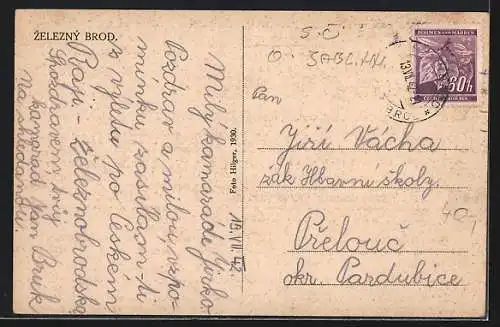 ŽELEZNÝ BROD.
Milý kamaráde Jirko
Pozdrav a milou vzpo-
mínku zasílám ti
z výletu po Českém
Ráji - Železnobrodska
Se pozdravem tvůj
kamarád Jan Bruk
Na shledanou.
19.VII 42.
Foto Hilger, 1930.
S. Č.
BÖHMEN UND MÄHREN
60h
ČECHY A MORAVA
Pan
Jiří Vácha
žák Hlavní školy.
Přelouč
okr. Pardubice
40,-